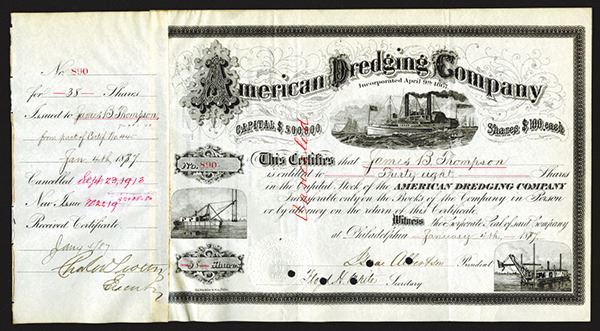 No. 890
for -38- Shares
Issued to James B Thompson
from part of Certif No 44
Jan. 4th 1887
Cancelled Sept 23, 1913
New Issue
Received Certificate
American Dredging Company
Incorporated April 9th 1867
CAPITAL $ 500,000
Shares $ 100 each
Cancelled
No. 890
This Certifies that James B Thompson
is entitled to Thirty eight Shares
in the Capital Stock of the AMERICAN DREDGING COMPANY
Transferable only on the Books of the Company in Person
or by attorney on the return of this Certificate.
Witness the Corporate Seal of said Company
at Philadelphia January 4th 1887
38 Shares
President
Secretary